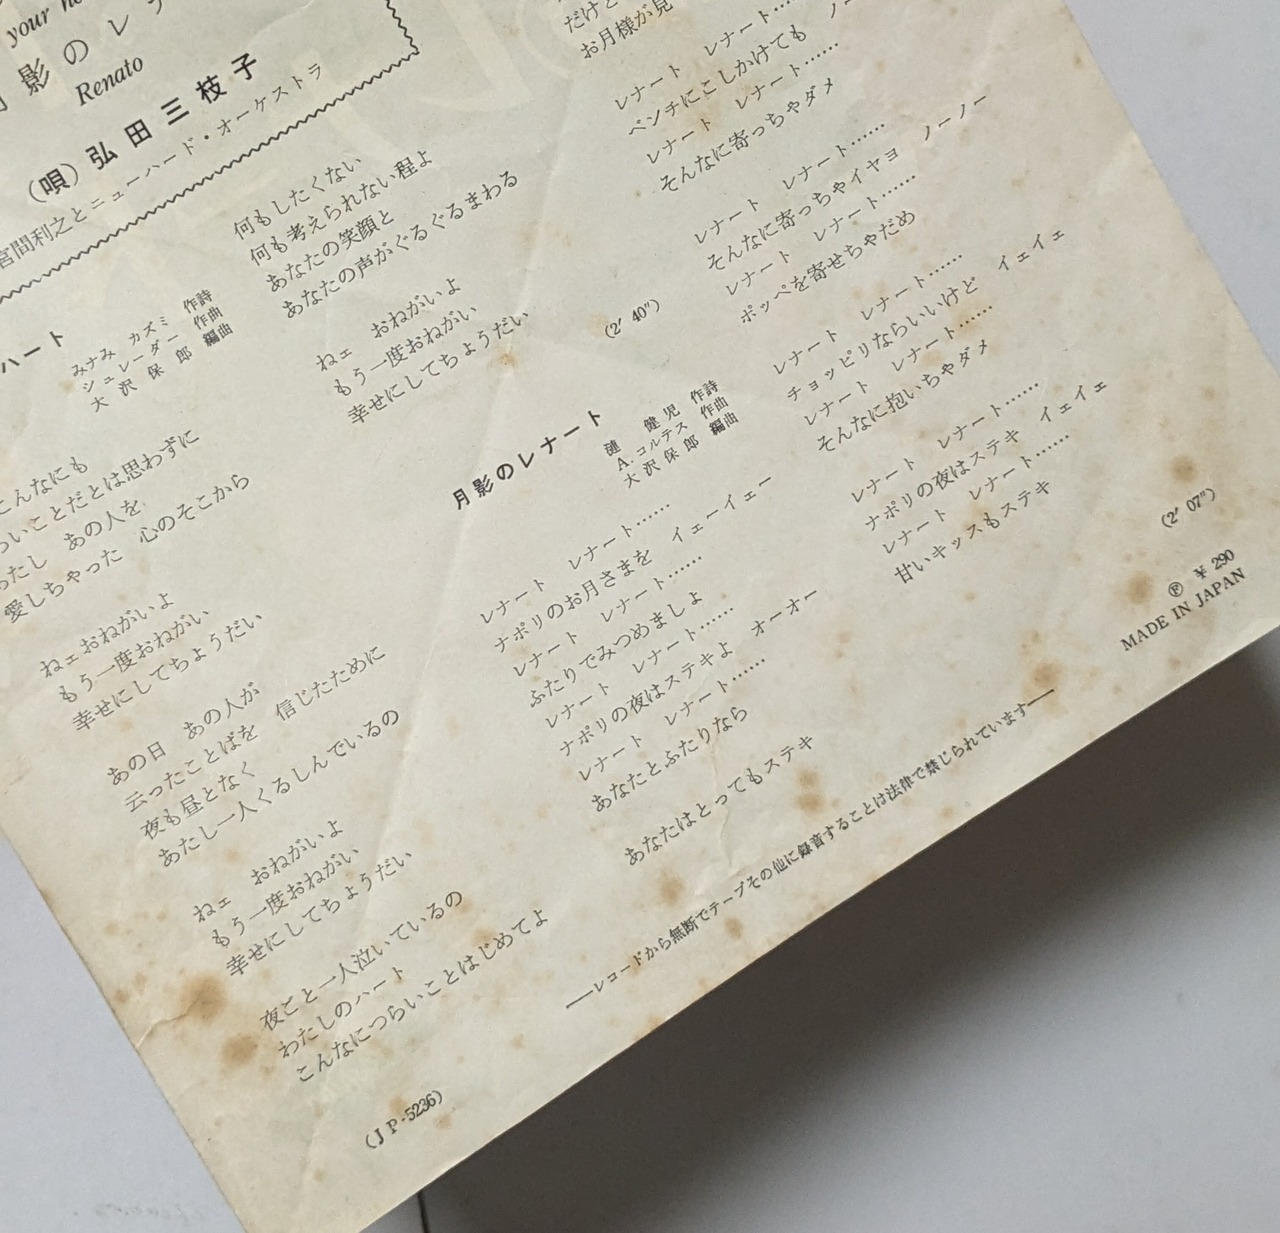 your
影のレナ
Renato
(唄) 弘田三枝子
宮間利之とニューハード・オーケストラ
ハート
みナみ カズミ 作詩
シュレーダー 作曲
大沢保郎 編曲
こんなにも
らいことだとは思わずに
わたし あの人を
愛しちゃった 心のそこから
ねェおねがいよ
もう一度おねがい
幸せにしてちょうだい
あの日 あの人が
云ったことばを 信じたために
夜も昼となく
あたし一人くるしんでいるの
ねェ おねがいよ
もう一度おねがい
幸せにしてちょうだい
夜ごと一人泣いているの
わたしのハート
こんなにつらいことはじめてよ
(JP-5236)
何もしたくない
何も考えられない程よ
あなたの笑顔と
あなたの声がぐるぐるまわる
ねェ おねがいよ
もう一度おねがい
幸せにしてちょうだい
(2′ 40″)
月影のレナート
漣健児 作詩
A.コルテス 作曲
大沢保郎 編曲
レナート レナート……
ナポリのお月さまを イェーイェー
レナート レナート……
ふたりでみつめましょ
レナート レナート……
ナポリの夜はステキよ オーオー
レナート レナート……
あなたとふたりなら
あなたはとってもステキ
だけど
お月様が見
レナート レナート……
ベンチにこしかけても ノー
レナート レナート……
そんなに寄っちゃダメ
レナート レナート……
そんなに寄っちゃイヤヨ ノーノー
レナート レナート……
ポッペを寄せちゃだめ
レナート レナート……
チョッピリならいいけど イェイェ
レナート レナート……
そんなに抱いちゃダメ
レナート レナート……
ナポリの夜はステキ イェイェ
レナート レナート……
甘いキッスもステキ
(2′ 07″)
Ⓟ ￥290
MADE IN JAPAN
――レコードから無断でテープその他に録音することは法律で禁じられています――